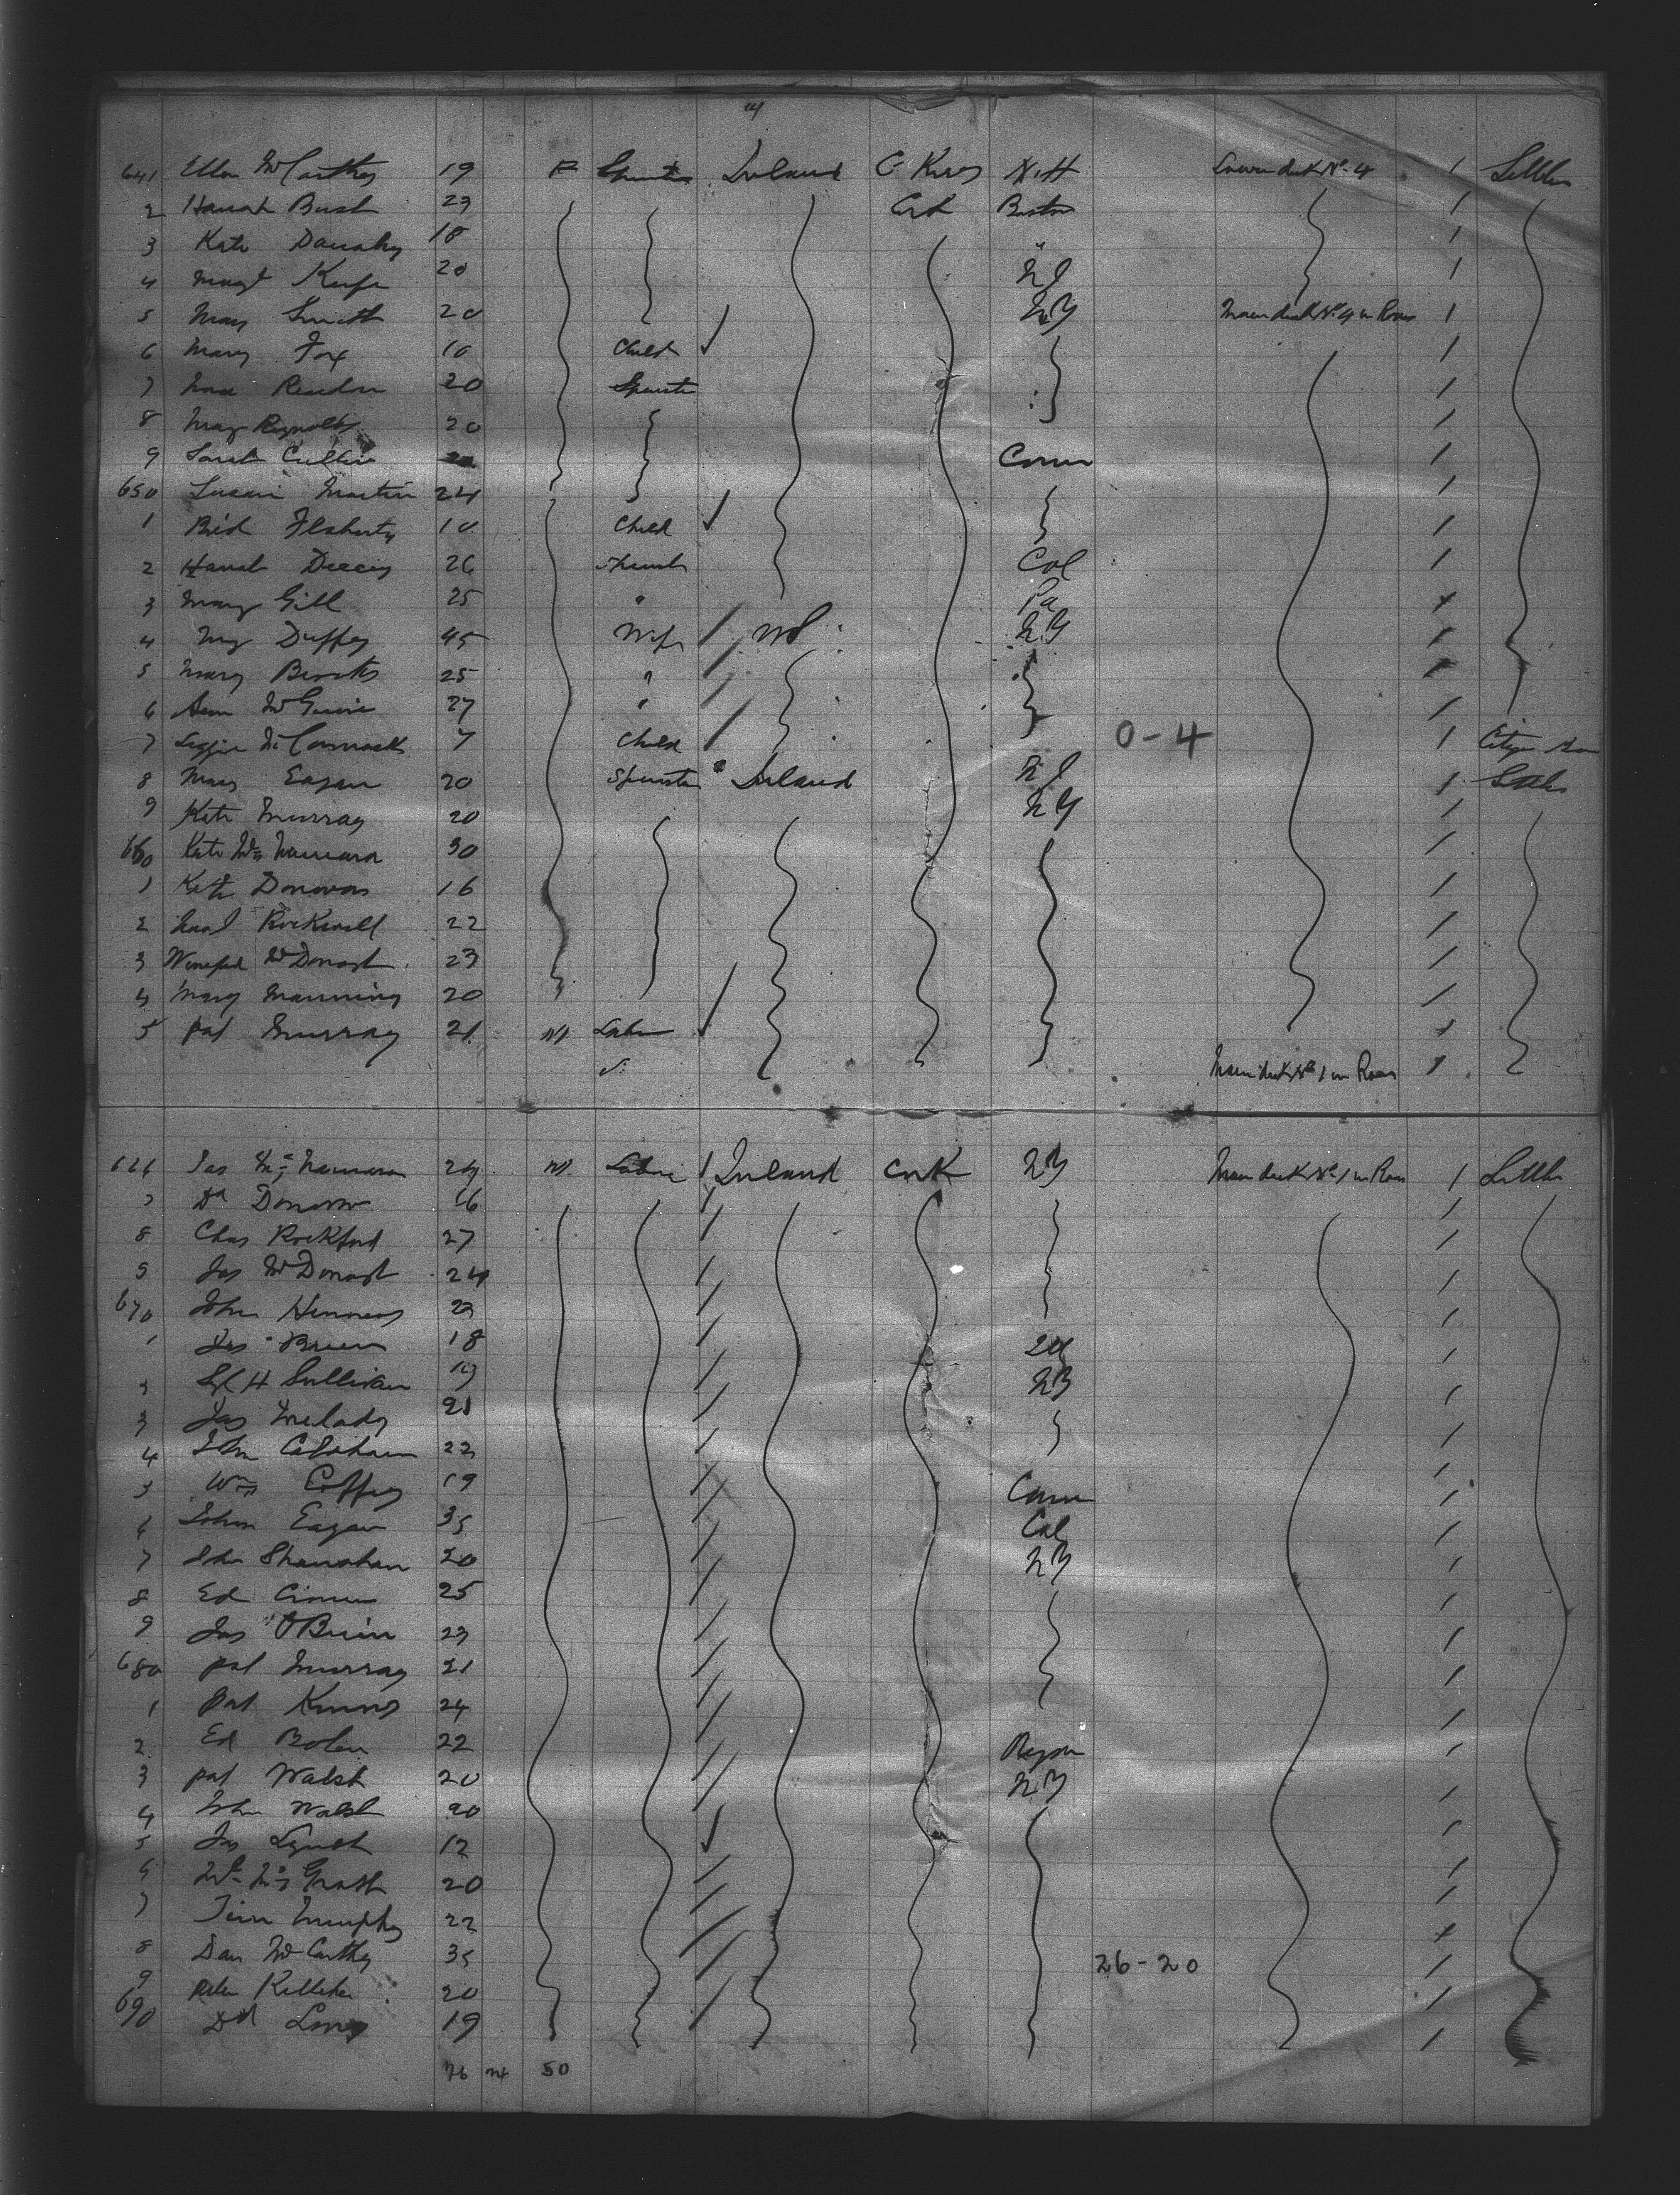 641 Ellen McCarthy 19 F Spinster Ireland C Kerry N.H Lower deck No 4 1 Settler
2 Hanah Bush 23 Cork Boston 1
3 Kate Danahy 18 " 1
4 Margt Keefe 20 NJ 1
5 Mary Smith 20 NY Main deck No 4 in Rooms 1
6 Mary Fox 10 Child 1
7 Nora Reardon 20 Spinster 1
8 Mary Reynolds 20 1
9 Sarah Cullin Conn 1
650 Susan Martin 24 1
1 Brid Flaherty 10 Child 1
2 Hanah 26 Spinster Col 1
3 Mary Gill 25 " Pa
4 My Duffey 45 Wife NY
5 Mary 25 "
6 Ann McGuire 27 " 1
7 Lizzie McCormack 7 Child 0-4 1 Citizen
8 Mary Eagan 20 Spinster Ireland NJ 1 Settler
9 Kate Murray 20 NY 1
660 Kate McNamara 30 1
1 Kate Donovan 16 1
2 Rockwell 22 1
3 Winifred McDonagh 23 1
4 Mary Manning 20 1
5 Pat Murray 21 M Labor
Main deck No 1 in Rooms 1
626 Jas McNamara 24 M Labor Ireland Cork NY Main deck No 1 in Rooms 1 Settler
7 Dd Donovan 16 1
8 Chas Rockford 27 1
9 Jas McDonagh 24 1
670 John Hennessy 1
1 Jas Brien 18 1
2 H Sullivan 19 NY 1
3 Jas Melady 21 1
4 John Calahan 22 1
5 Wm Coffey 19 Conn 1
6 John Eagan 35 Cal 1
7 John Shanahan 20 NY 1
8 Ed 25 1
9 Jas O'Brien 23 1
680 Pat Murray 21 1
1 Pat 24 1
2 Ed Bolen 22 1
3 Pat Walsh 20 NY 1
4 John Walsh 20 1
5 Jas Lynch 12 1
6 McGrath 20 1
7 Tim Murphy 22
8 Dan McCarthy 35 26-20 1
9 Peter Kelleher 20 1
690 Dd Long 19 1
26 24 50